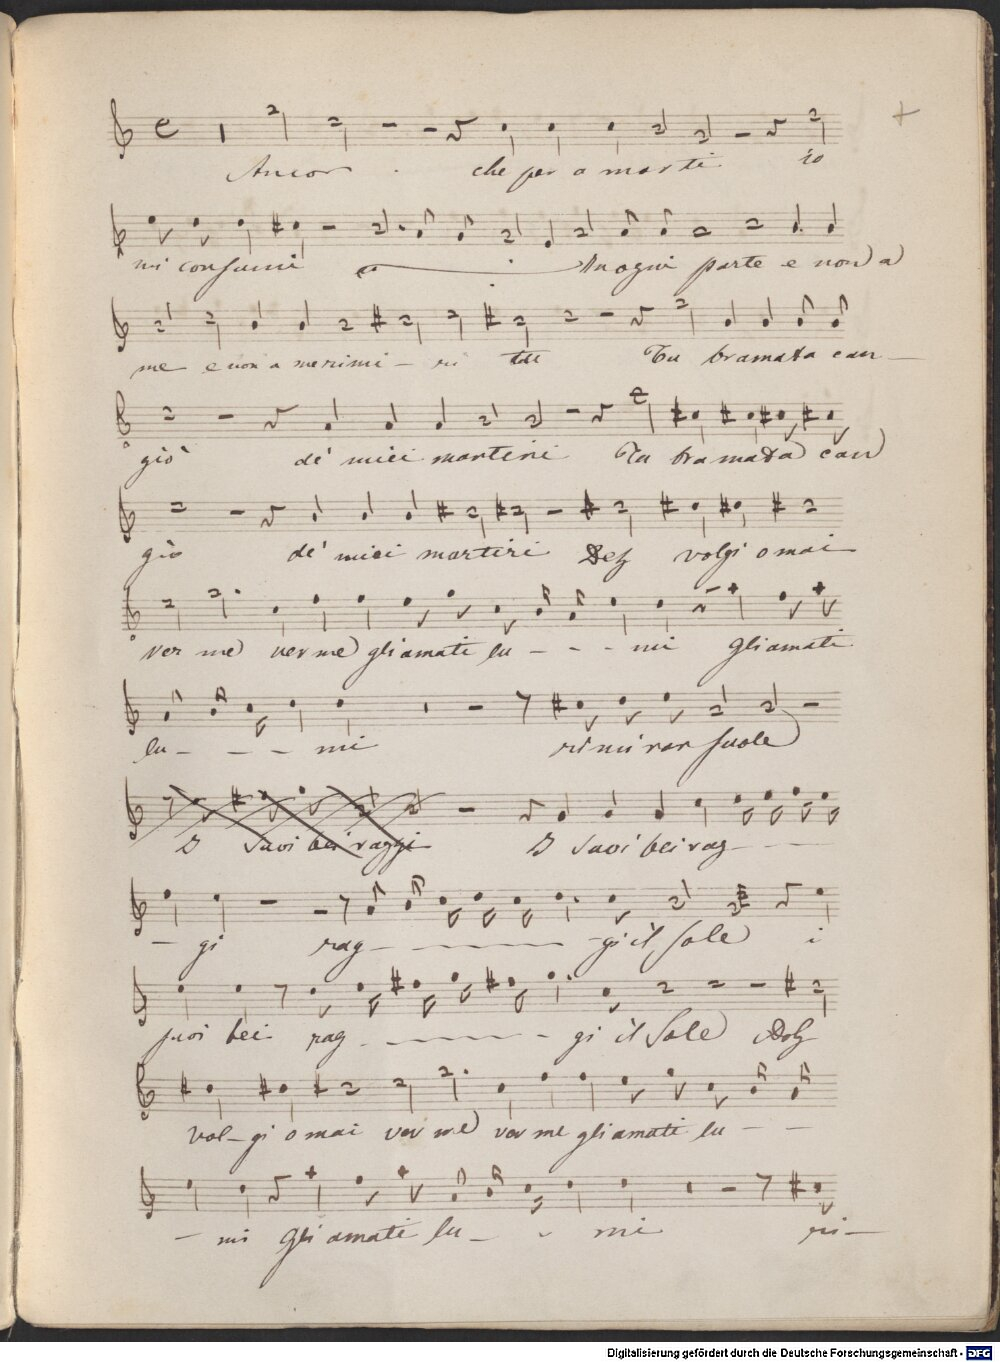 Ancor che per amarti io
mi consumi In ogni parte e non a
me e non a me rimi - ri tu Tu bramata can -
giò de' miei martiri Tu bramata can
giò de' miei martiri Deh volgi omai
ver me ver me gli amati lu - - - mi gli amati
lu - - - mi ri mirar suole
I suoi bei raggi I suoi bei rag - - - -
- gi rag - - - - - - gi il sole i
suoi bei rag - - - - - - gi il Sole Deh
vol - gi omai ver me ver me gli amati lu - -
- mi gli amati lu - - mi ri -
Digitalisierung gefördert durch die Deutsche Forschungsgemeinschaft - DFG